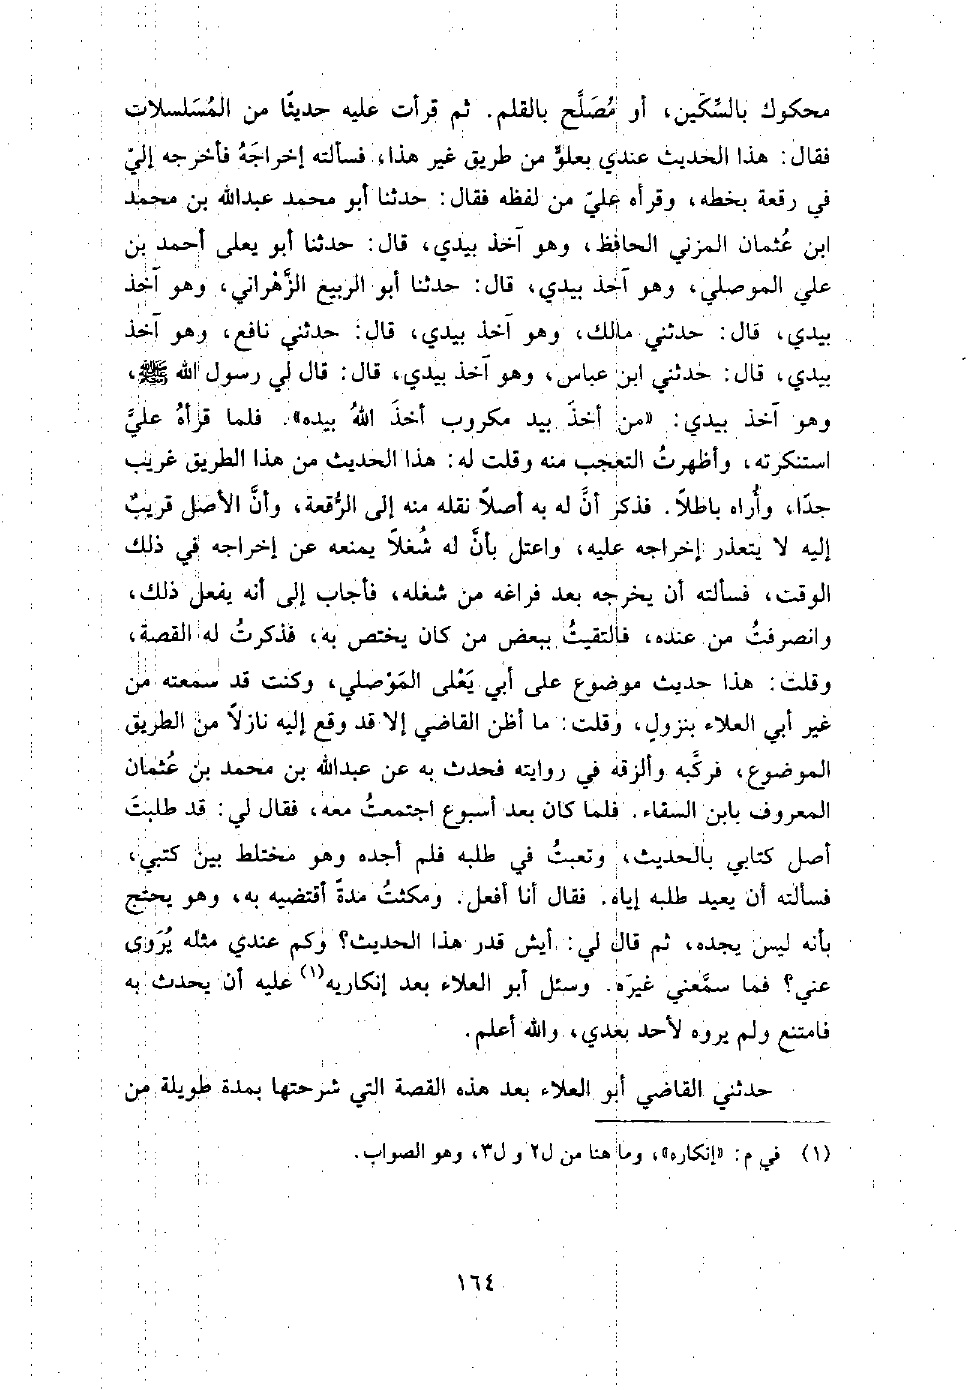 محكوك بالسِّكِّين، أو مُصَلَّح بالقلم. ثم قرأت عليه حديثًا من المُسَلسلات
فقال: هذا الحديث عندي بعلوٍّ من طريق غير هذا، فسألته إخراجَهُ فأخرجه إليّ
في رقعة بخطه، وقرأه عليّ من لفظه فقال: حدثنا أبو محمد عبدالله بن محمد
ابن عُثمان المزني الحافظ، وهو آخذ بيدي، قال: حدثنا أبو يعلى أحمد بن
علي الموصلي، وهو آخذ بيدي، قال: حدثنا أبو الربيع الزَّهْراني، وهو آخذ
بيدي، قال: حدثني مالك، وهو آخذ بيدي، قال: حدثني نافع، وهو آخذ
بيدي، قال: حدثني ابن عباس، وهو آخذ بيدي، قال: قال لي رسول الله ﷺ،
وهو آخذ بيدي: «من أخذَ بيد مكروب أخذَ اللهُ بيده». فلما قرأهُ عليَّ
استنكرته، وأظهرتُ التعجب منه وقلت له: هذا الحديث من هذا الطريق غريب
جدًا، وأُراه باطلاً. فذكر أنَّ له به أصلاً نقله منه إلى الرُّقعة، وأنَّ الأصل قريبٌ
إليه لا يتعذر إخراجه عليه، واعتل بأنَّ له شُغلاً يمنعه عن إخراجه في ذلك
الوقت، فسألته أن يخرجه بعد فراغه من شغله، فأجاب إلى أنه يفعل ذلك،
وانصرفتُ من عنده، فالتقيتُ ببعض من كان يختص به، فذكرتُ له القصة،
وقلت: هذا حديث موضوع على أبي يَعْلى المَوْصلي، وكنت قد سمعته من
غير أبي العلاء بنزولٍ، وقلت: ما أظن القاضي إلا قد وقع إليه نازلاً من الطريق
الموضوع، فركَّبه وألزقه في روايته فحدث به عن عبدالله بن محمد بن عُثمان
المعروف بابن السقاء. فلما كان بعد أسبوع اجتمعتُ معه، فقال لي: قد طلبتَ
أصل كتابي بالحديث، وتعبتُ في طلبه فلم أجده وهو مختلط بين كتبي،
فسألته أن يعيد طلبه إياه. فقال أنا أفعل. ومكثتُ مدةً أقتضيه به، وهو يحتج
بأنه ليس يجده، ثم قال لي: أيش قدر هذا الحديث؟ وكم عندي مثله يُرْوَى
عني؟ فما سمَّعني غيرَه. وسئل أبو العلاء بعد إنكاريه(١) عليه أن يحدث به
فامتنع ولم يروه لأحد بعدي، والله أعلم.
حدثني القاضي أبو العلاء بعد هذه القصة التي شرحتها بمدة طويلة من
(١) في م: «إنكاره»، وما هنا من ل٢ و ل٣، وهو الصواب.
١٦٤